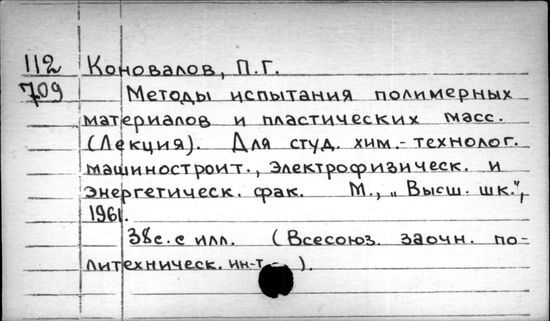 112 Коновалов, П.Г.
709 Методы испытания полимерных
материалов и пластических масс.
(Лекция). Для студ. хим.-технолог.
машиностроит., электрофизическ. и
энергетическ. фак. М., „Высш. шк.",
1961.
38с. с илл. (Всесоюз. заочн. по-
литехническ. ин-т ).